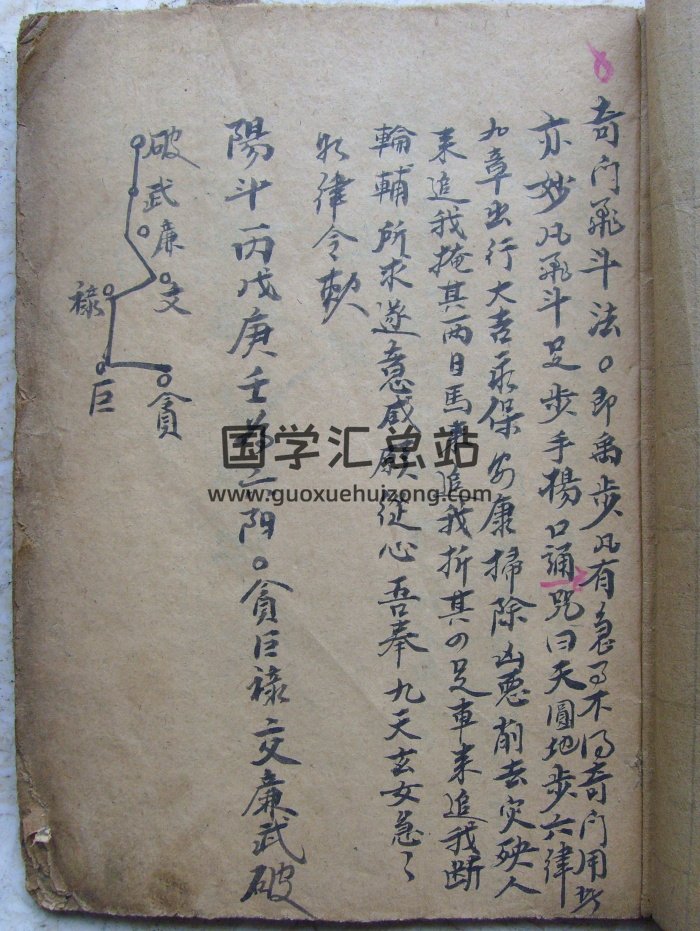 奇门飛斗法。即禹步凡有急了不得奇门用此
亦妙凡飛斗足步手揚口誦咒曰天圓地步六律
九章出行大吉永保安康掃除凶惡削去灾殃人
来追我掩其兩目馬来追我折其四足車来追我断
輪輔所求遂意咸願従心吾奉九天玄女急〻
如律令敕
陽斗丙戊庚壬為六阳。貪巨禄文廉武破
破
武
廉
文
禄
巨
貪
国学汇总站
www.guoxuehuizong.com